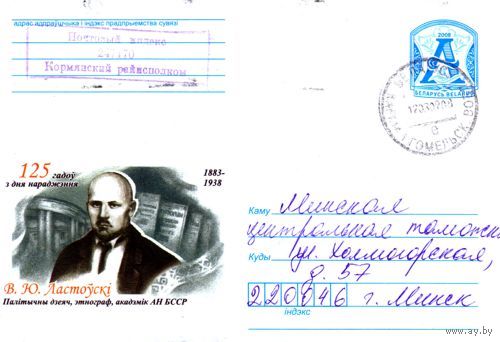 адрас адпраўшчыка і індэкс прадпрыемства сувязі
Почтовый индекс
247170
Кормянский райисполком
2008
А
БЕЛАРУСЬ BELARUS
125 гадоў
з дня нараджэння
1883-
1938
В. Ю. Ластоўскі
Палітычны дзеяч, этнограф, акадэмік АН БССР
Каму Минская
центральная таможня
Куды ул. Холмогорская,
д. 57
220046 г. Минск
індэкс
www.ay.by